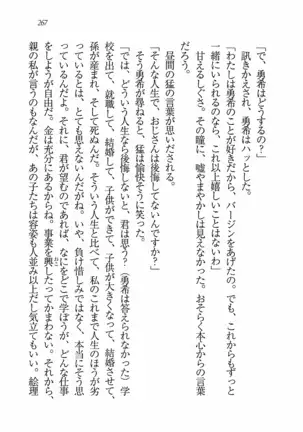 267
「で、勇希はどうするの？」
訊きかえされ、勇希はハッとした。
「わたしは勇希のことが好きだから、バージンをあげたの。でも、これからもずっと
一緒にいられるのなら、これ以上嬉しいことはないわ」
甘えるしぐさ。その瞳に、嘘やまやかしは見えなかった。おそらく本心からの言葉
だろう。
昼間の猛の言葉が思いだされる。
「そんな人生で、おじさんは後悔してないんですか？」
そう勇希が尋ねると、猛は愉快そうに笑った。
「では、どういう人生なら後悔しないと、君は思う？（勇希は答えられなかった）学
校を出て、就職して、結婚して、子供ができて、子供が大きくなって、結婚させて、
孫が産まれ、そして死ぬんだ。そういう人生と比べて、私のこれまで人生のほうが劣
っているとは、とても思えないんだがね。いや、負け惜しみではなく、本当にそう思
っているんだよ。それに、君が望むのであれば、なにをどこで学ぼうが、どんな仕事
をしようが自由だ。金は充分にあるからね。事業を興したってかまわない。それから、
親の私が言うのもなんだが、あの子たちは容姿も人並み以上だし気立てもいい。絵理